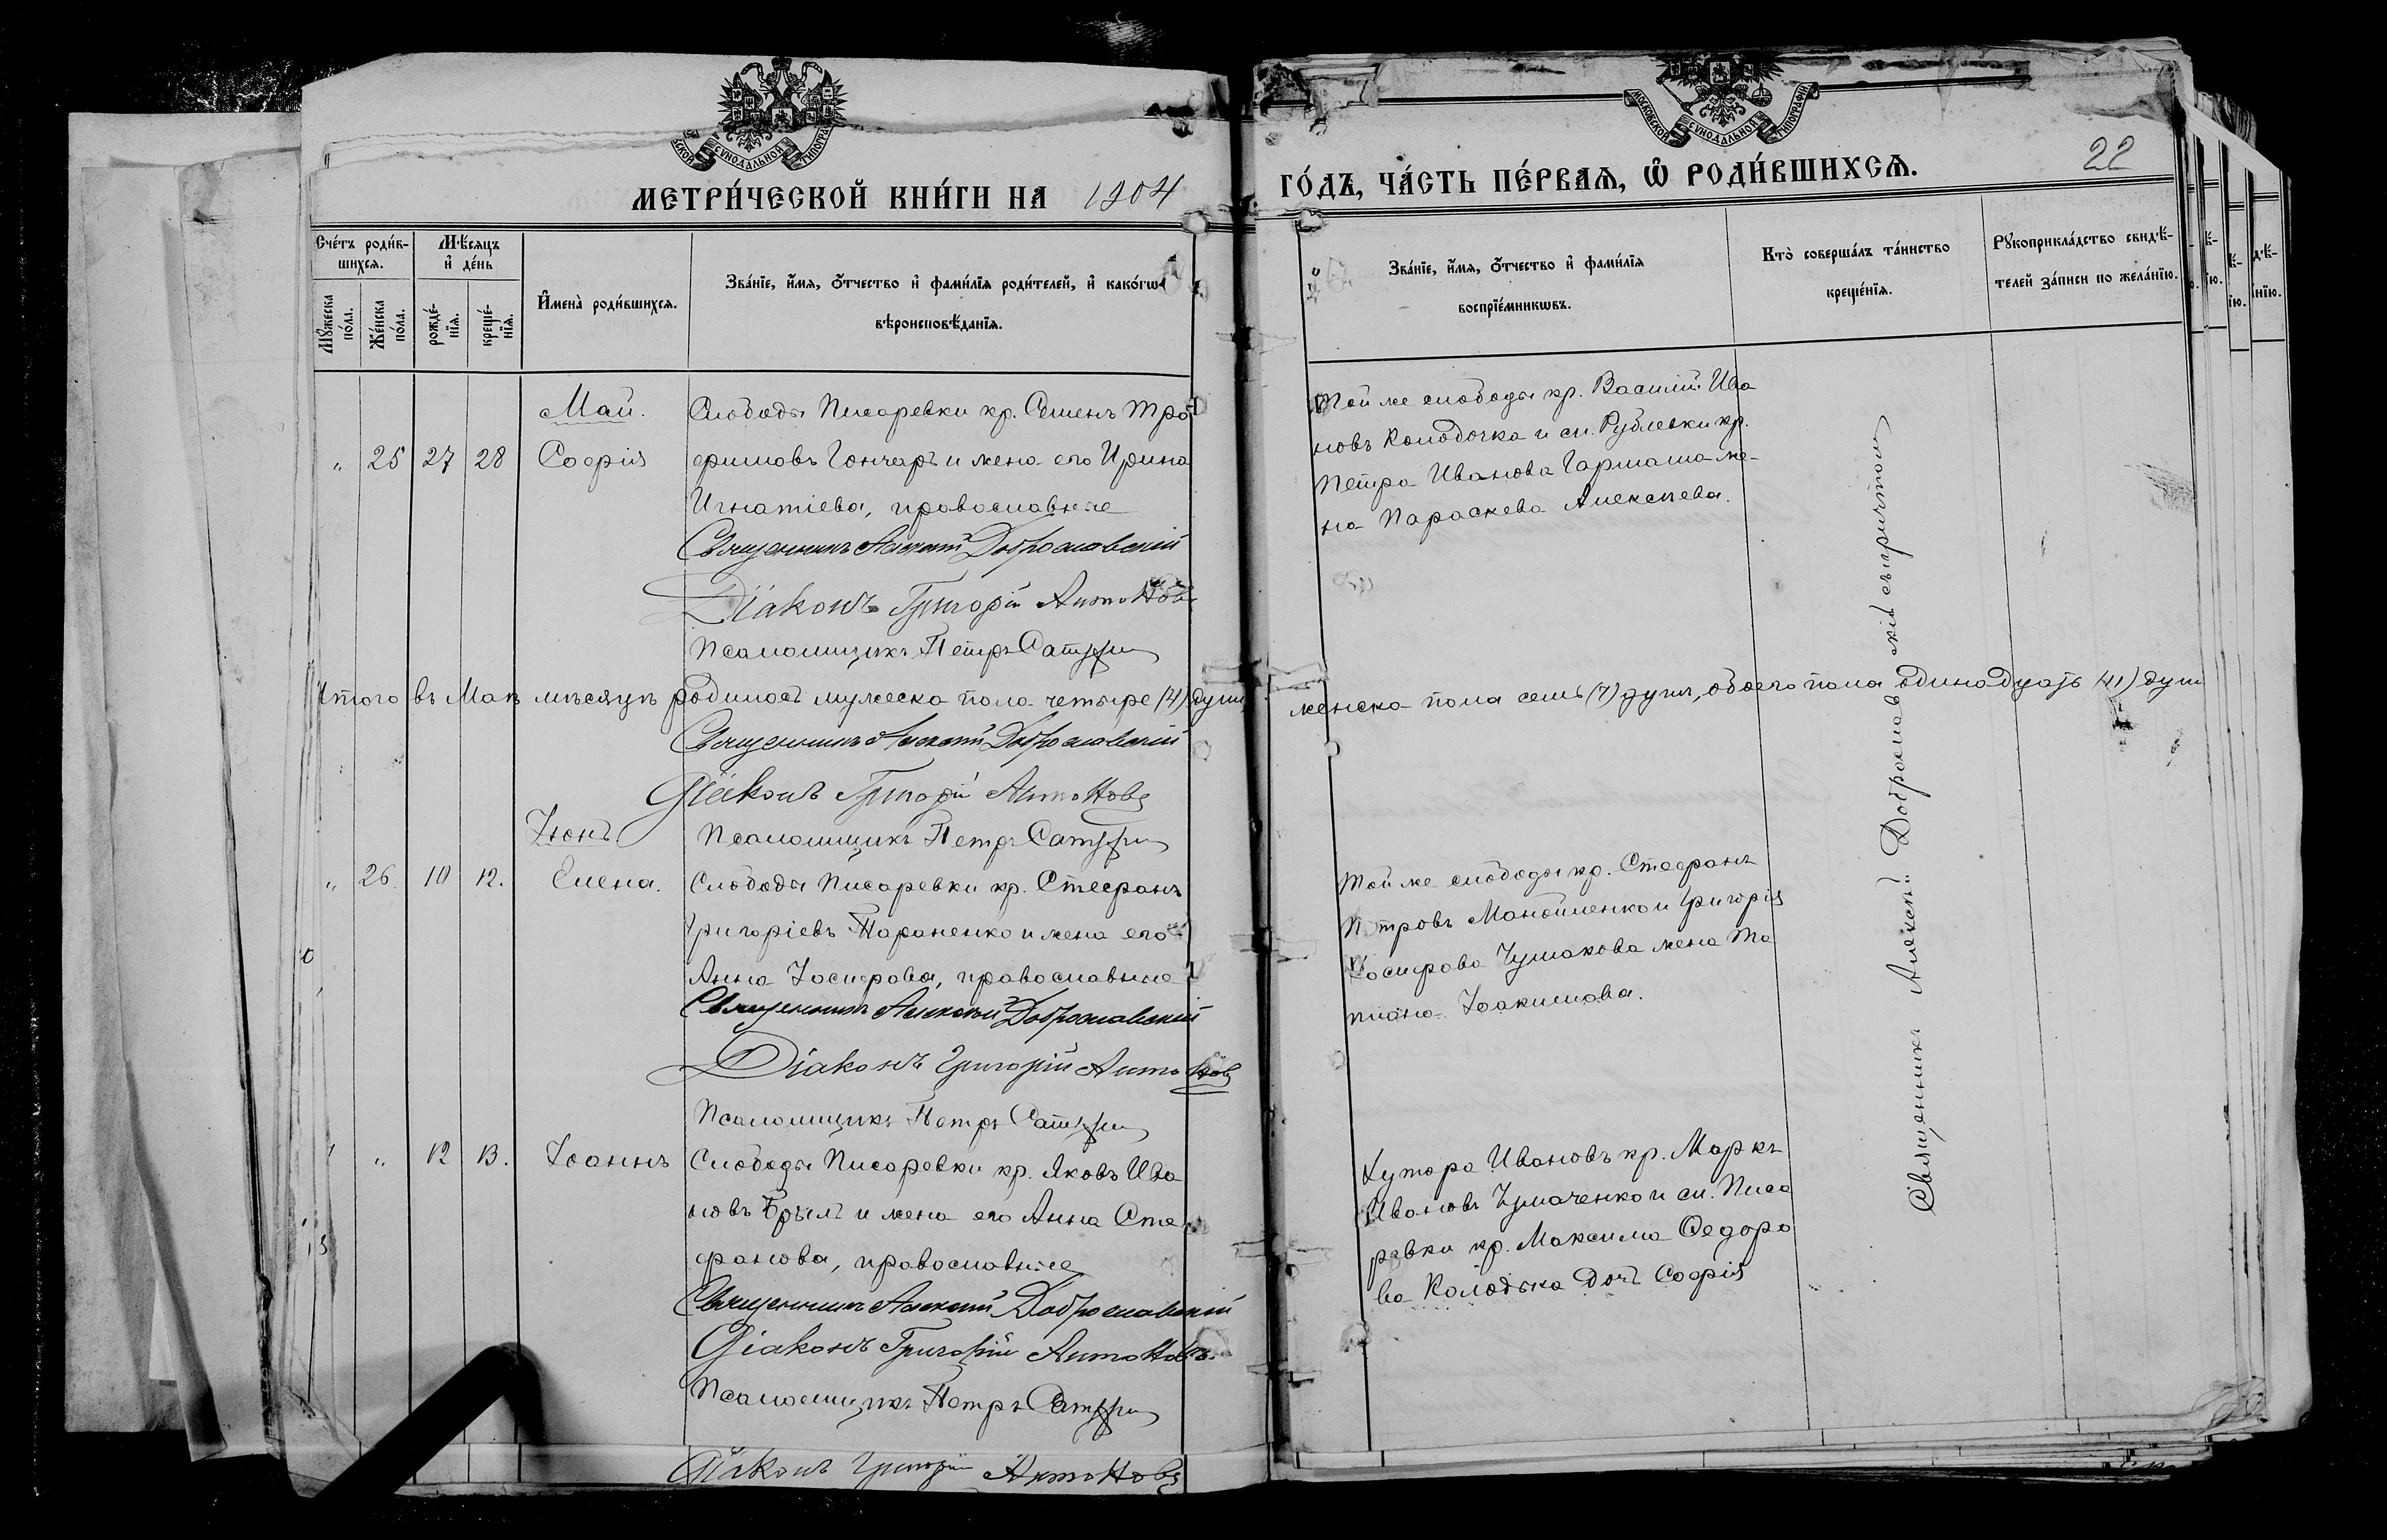 МОСКОВСКОЙ СУНОДАЛЬНОЙ ТИПОГРАФІИ
МЕТРИ́ЧЕСКОЙ КНИ́ГИ НА 1904
ГО́ДЪ, ЧА́СТЬ ПЕ́РВАЯ, Ѽ РОДИ́ВШИХСЯ.
22
Сче́тъ роди́в-
шихся.
Мѣ́сяцъ
и҆ де́нь
Мꙋ́жеска
по́ла.
Же́нска
по́ла.
рожде́-
нїя.
креще́-
нїя.
И҆мена̀ роди́вшихся.
Зва́нїе, и҆́мя, ѻ҆́тчество и҆ фами́лїя роди́телей, и҆ како́гѡ
вѣроисповѣ́данїя.
Зва́нїе, и҆́мя, ѻ҆́тчество и҆ фами́лїя
воспрїе́мникѡвъ.
Кто̀ соверша́лъ та́инство
креще́нїя.
Рꙋкоприкла́дство свидѣ́-
телей за́писи по жела́нїю.
Май.
„ 25 27 28 Софія
Слободы Писаревки кр. Семенъ Тро
фимовъ Гончаръ и жена его Ирина
Игнатіева, православные
Священникъ Алексій Доброславскій
Діаконъ Григорій Антоновъ
Псаломщикъ Петръ
Той же слободы кр. Василій Ива
новъ Колодочка и сл. Рублевки кр.
Петра Иванова Гармаша же-
на Параскева Алексѣева.
Итого въ Маѣ мѣсяцѣ родилось мужеска пола четыре (4) душ
женска пола семь (7) душъ, обоего пола одинадцать (11) душ
Священникъ Алексій Доброславскій
Діаконъ Григорій Антоновъ
Псаломщикъ Петръ
Іюнь
„ 26 10 12. Елена.
Слободы Писаревки кр. Стефанъ
Григоріевъ Параненко и жена его
Анна Іосифова, православные
Священникъ Алексій Доброславскій
Діаконъ Григорій Антоновъ
Псаломщикъ Петръ
Той же слободы кр. Стефанъ
Петровъ Манойленко и Григорія
Іосифова Чумакова жена Та
тіана Іоакимова.
„ 12 13. Іоаннъ
Слободы Писаревки кр. Яковъ Ива
новъ Брыль и жена его Анна Сте
фанова, православные
Священникъ Алексій Доброславскій
Діаконъ Григорій Антоновъ
Псаломщикъ Петръ
Хутора Ивановъ кр. Маркъ
Ивановъ Чумаченко и сл. Писа
ревки кр. Максима Федоро
ва Колодяка дочь Софія
Священникъ Алексій Доброславскій съ причтомъ
Діаконъ Григорій Антоновъ